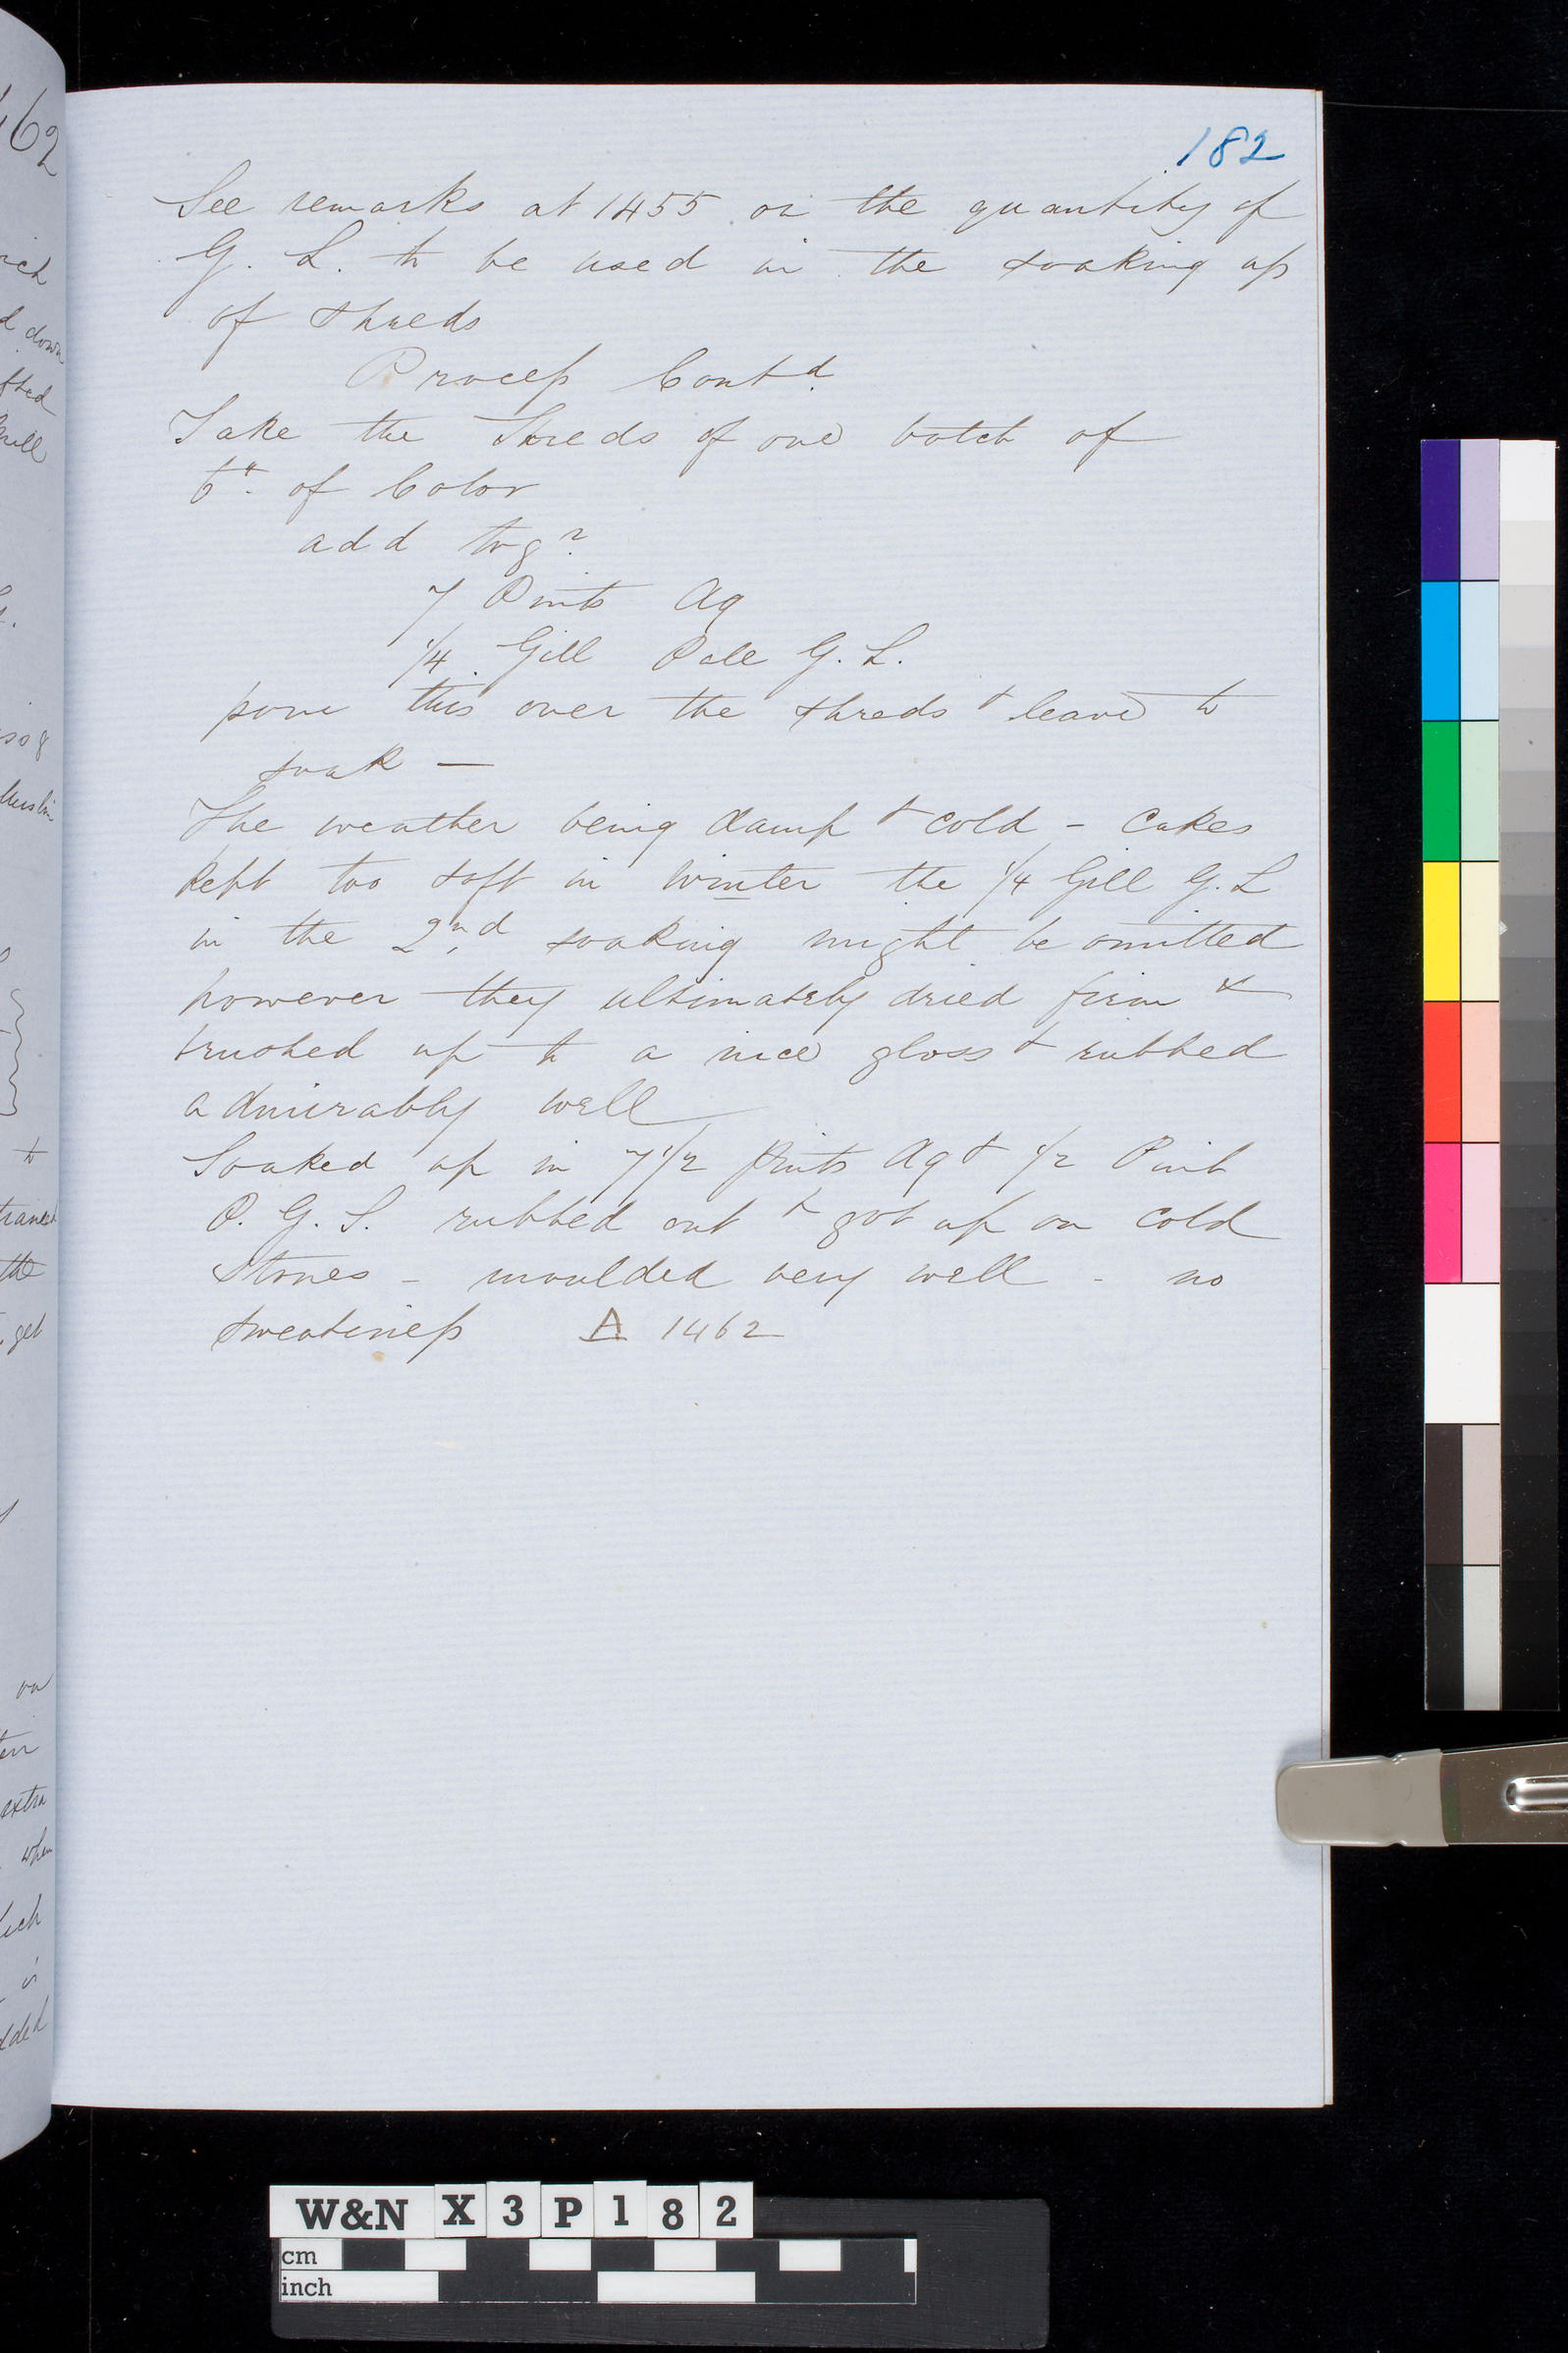 182
See remarks at 1455 on the quantity of
G. L. to be used in the soaking up
of shreds
Process Contd
Take the Shreds of one batch of
6" of Color
add togr
7 Pints Aq
1/4 Gill Pale G. L.
pour this over the shreds & leave to
soak —
The weather being damp & cold - Cakes
kept too soft in Winter the 1/4 Gill G. L
in the 2nd soaking might be omitted
however they ultimately dried firm &
brushed up to a nice gloss & rubbed
admirably well
Soaked up in 7 1/2 pints Aq & 1/2 Pint
P. G. S. rubbed out & got up on cold
Stones - moulded very well - no
sweatiness A 1462
W&N X 3 P 1 8 2
cm
inch